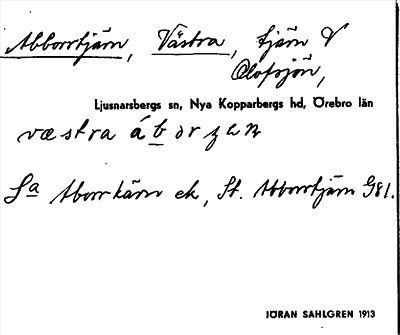 Abborrtjärn, Västra, tjärn V
Olofsjön,
Ljusnarsbergs sn, Nya Kopparbergs hd, Örebro län
væstra á b or
Sa Aborrkärn ek, St. Abborrtjärn G81.
JÖRAN SAHLGREN 1913